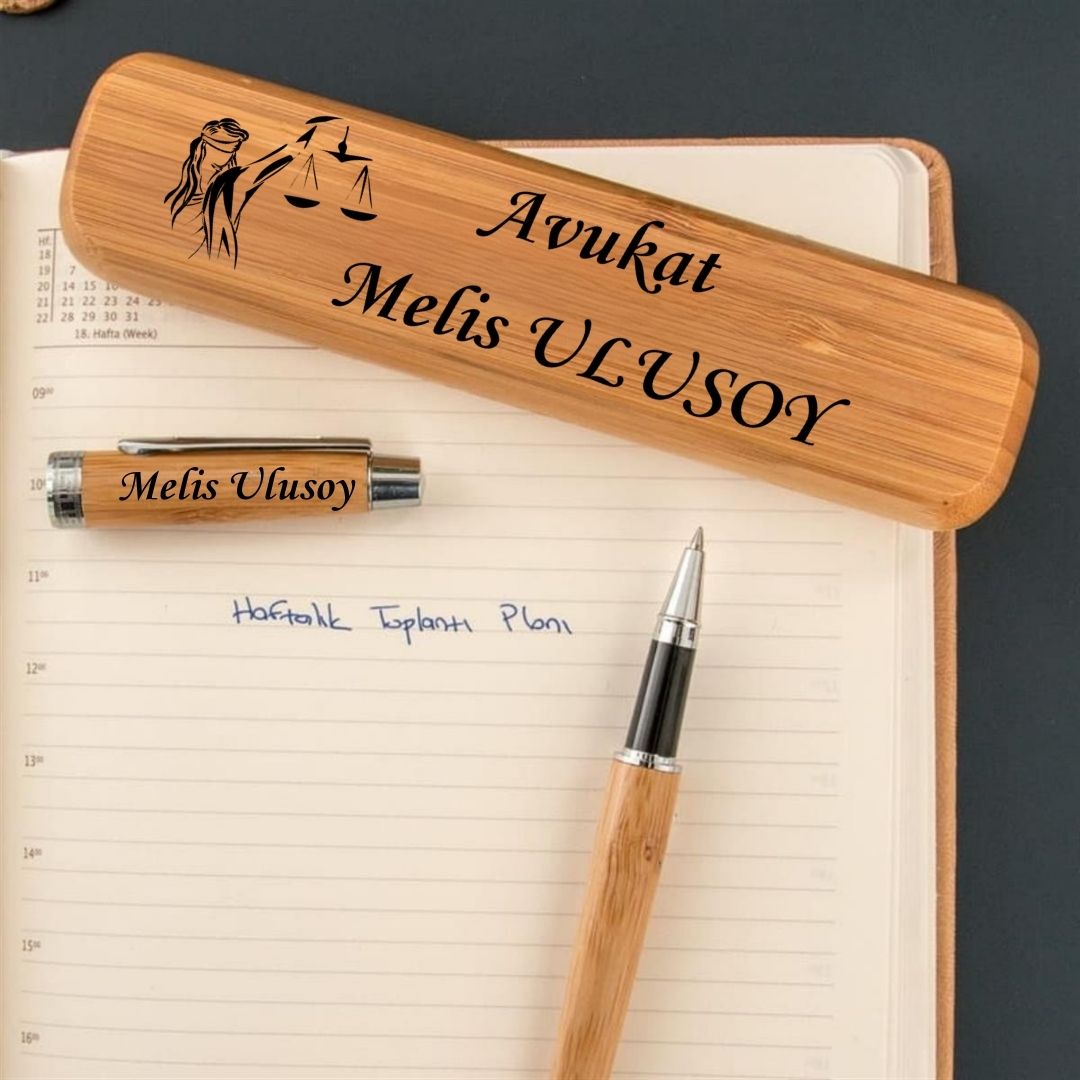 Avukat
Melis ULUSOY
Hf.
18
19 7
20 14 15 16
21 21 22 23 24 25
22 28 29 30 31
18. Hafta (Week)
09⁰⁰
Melis Ulusoy
10
11⁰⁰
Haftalık Toplantı Planı
12⁰⁰
13⁰⁰
14⁰⁰
15⁰⁰
16⁰⁰